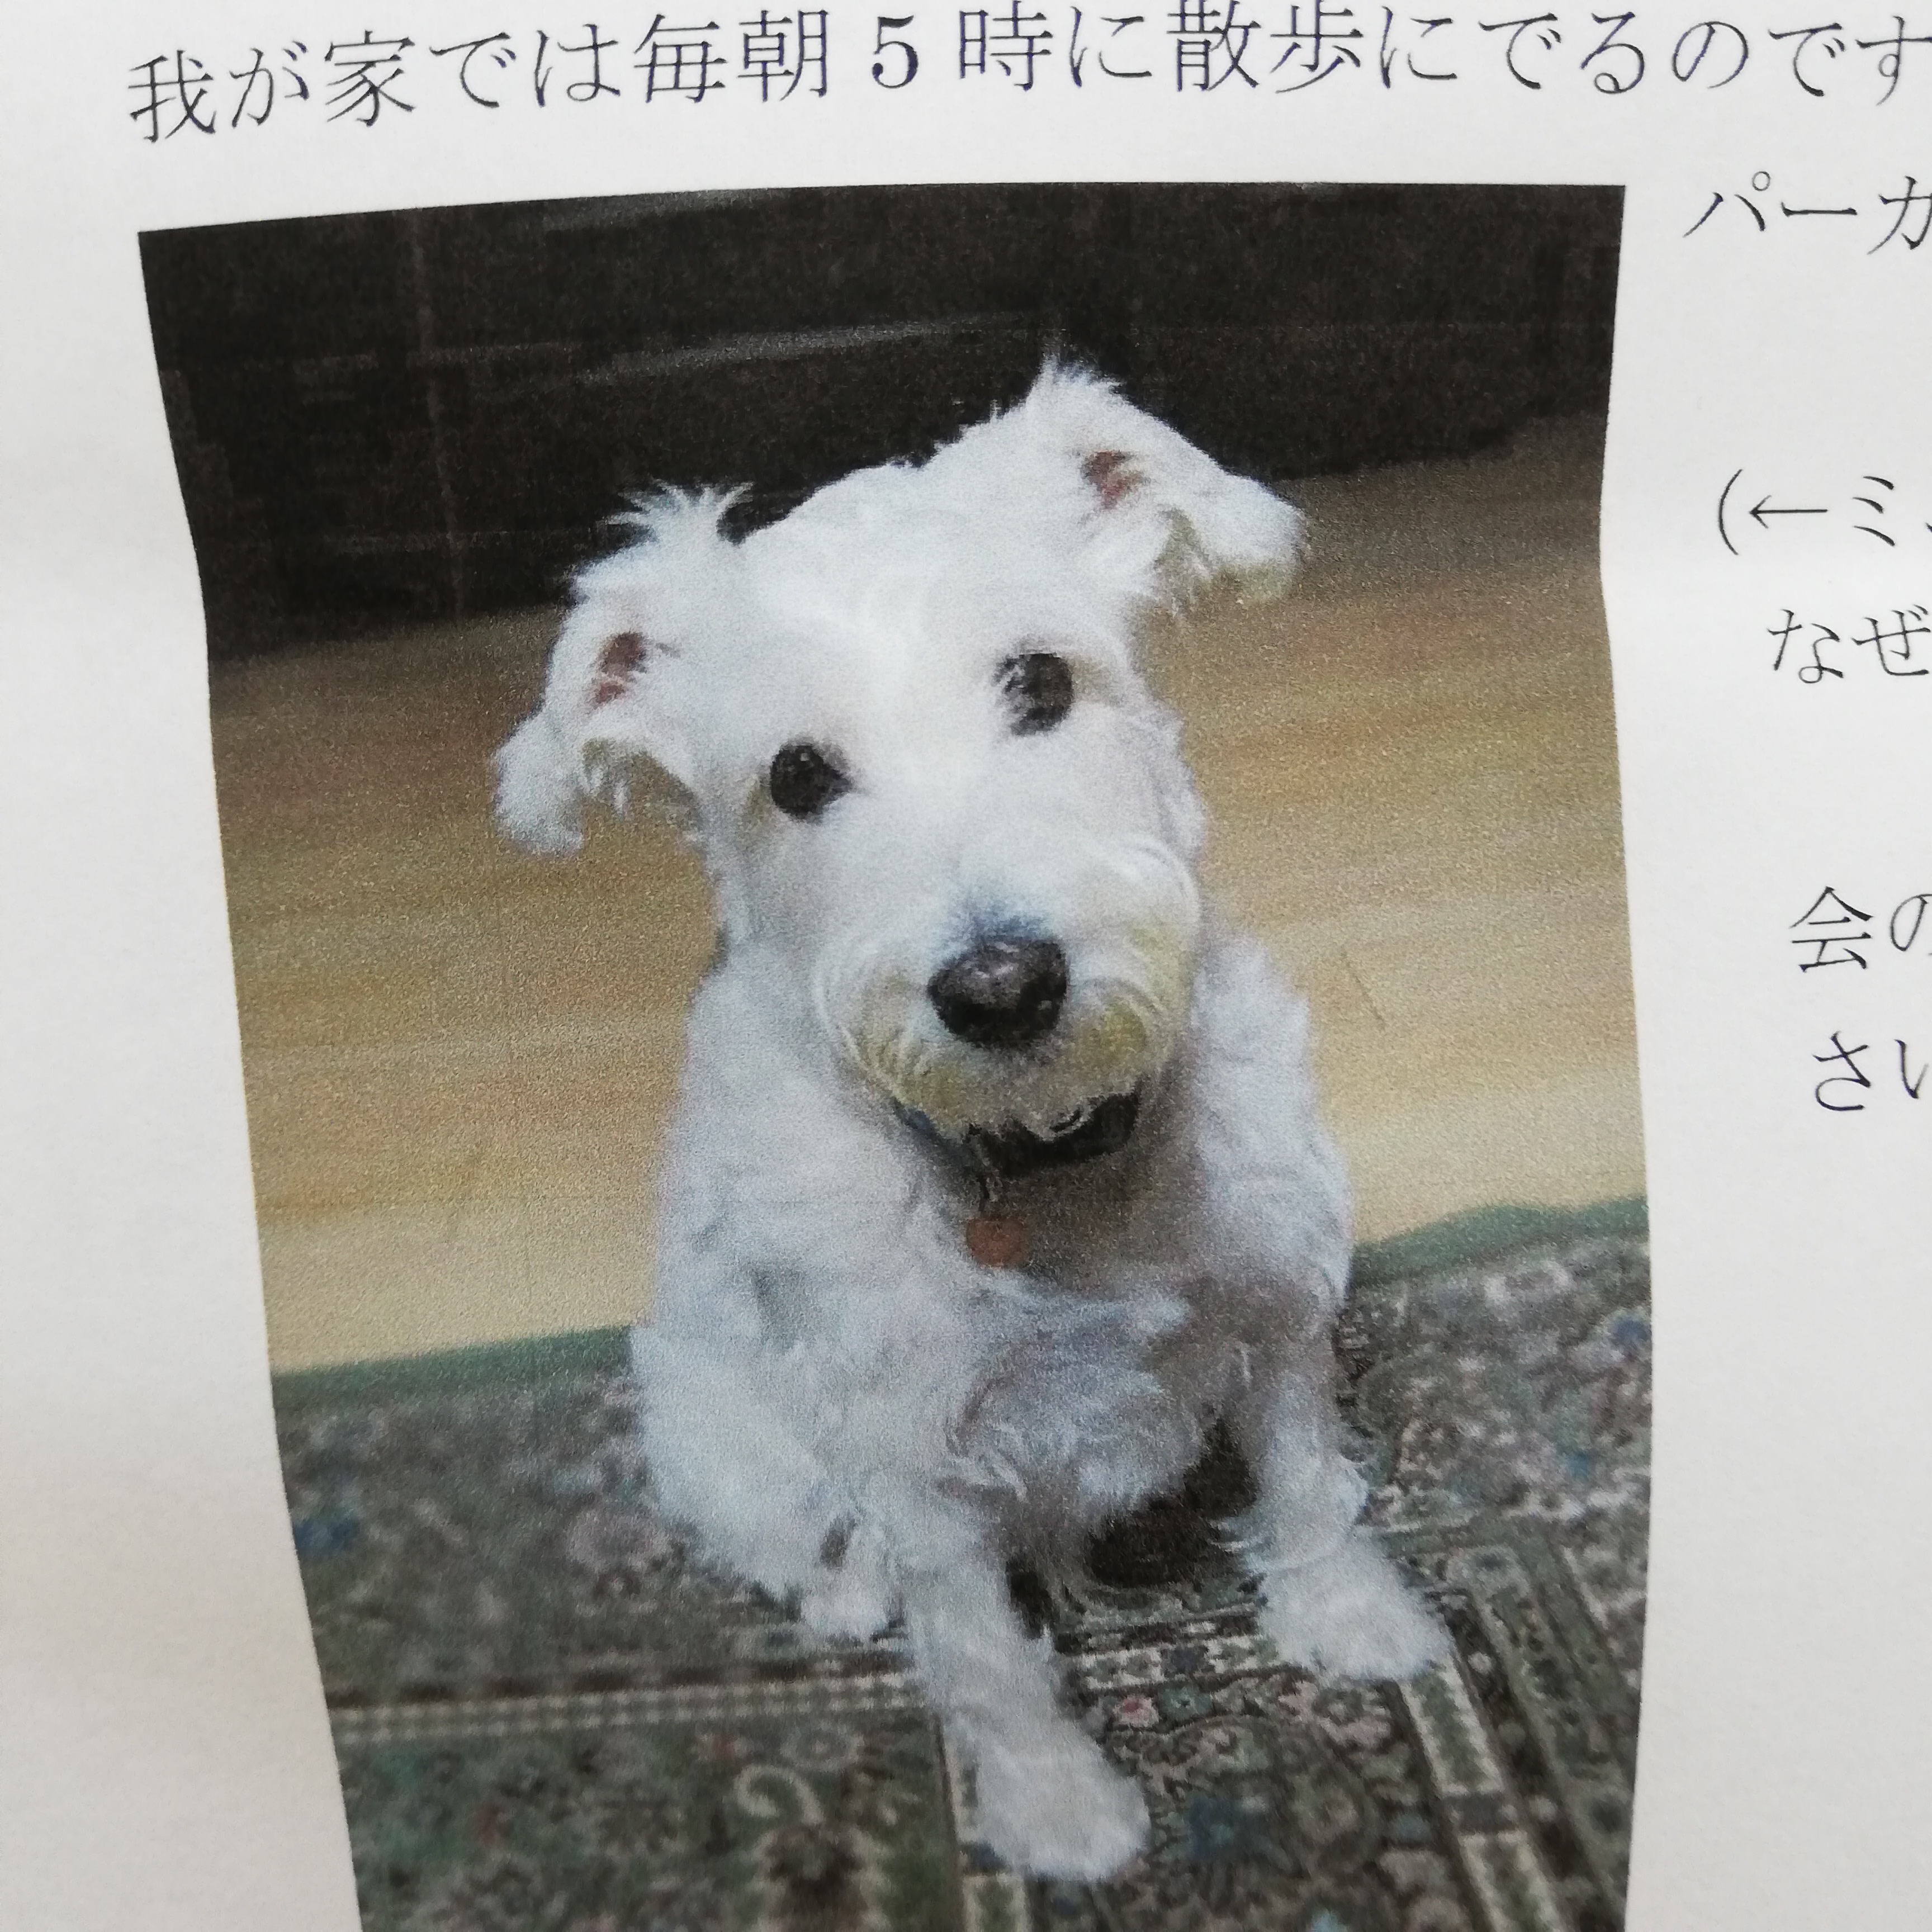 我が家では毎朝5時に散歩にでるのです
パーカ
(←ミ
なぜ
会の
さい